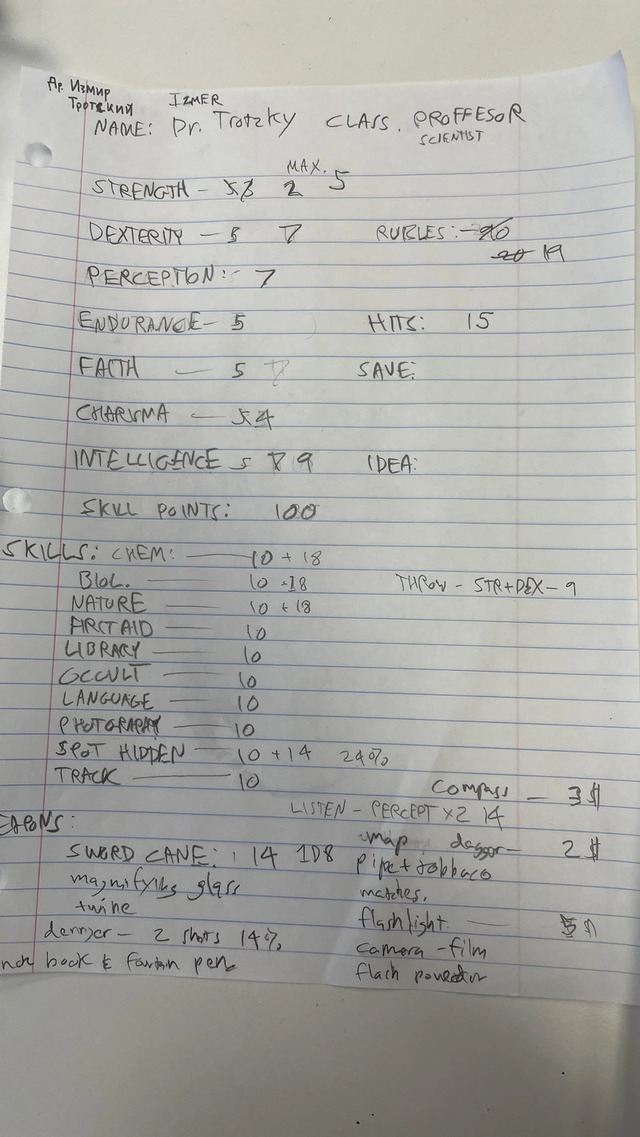 Др. Измир
Тротский
IZMER
NAME: Dr. Trotzky CLASS. PROFFESOR
SCIENTIST
MAX.
STRENGTH - 2 5
DEXTERITY - 5 7 RUBLES: 20
20 19
PERCEPTION: - 7
ENDURANCE - 5 HITS: 15
FAITH - 5 7 SAVE:
CHARISMA - 5 4
INTELLIGENCE 5 7 9 IDEA:
SKILL POINTS: 100
SKILLS: CHEM: - 10 + 18
BIOL. - 10 +18 THROW - STR+DEX - 9
NATURE - 10 + 18
FIRST AID - 10
LIBRARY - 10
OCCULT - 10
LANGUAGE - 10
PHOTOGRAPHY - 10
SPOT HIDDEN - 10 + 14 24%
TRACK - 10
compass - 3$
LISTEN - PERCEPT x2 14
EAPONS: map daggor - 2 $
SWORD CANE: 14 1D8 pipe + tobbaco
magnifying glass matches.
twine flashlight - 5$
derringer - 2 shots 14% camera - film
book & fountain pen flash powder